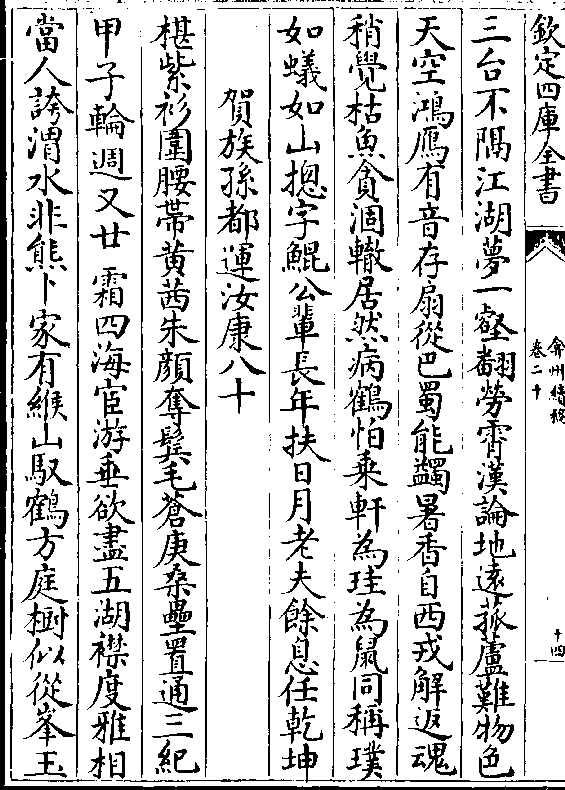 欽定四庫全書
弇州續稿
卷二十
十四
三台不隔江湖夢一壑翻勞霄漢論地遠菰蘆難物色
天空鴻鴈有音存扇從巴蜀能蠲暑香自西戎解返魂
稍覺枯魚貪涸轍居然病鶴怕乘軒為珪為鼠同稱璞
如蟻如山摠字鯤公輩長年扶日月老夫餘息任乾坤
賀族孫都運汝康八十
椹紫衫圍腰帶黃茜朱顏奪鬂毛蒼庚桑壘置通三紀
甲子輪週又廿霜四海宦游垂欲盡五湖襟度雅相
當人誇渭水非熊卜家有緱山馭鶴方庭樹似從峯玉